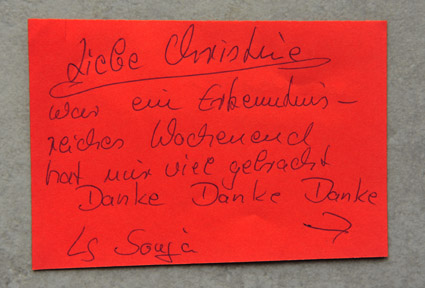 Liebe Christine
war ein Erkenntnis-
reiches Wochenend
hat mir viel gebracht
Danke Danke Danke
LG Sonja